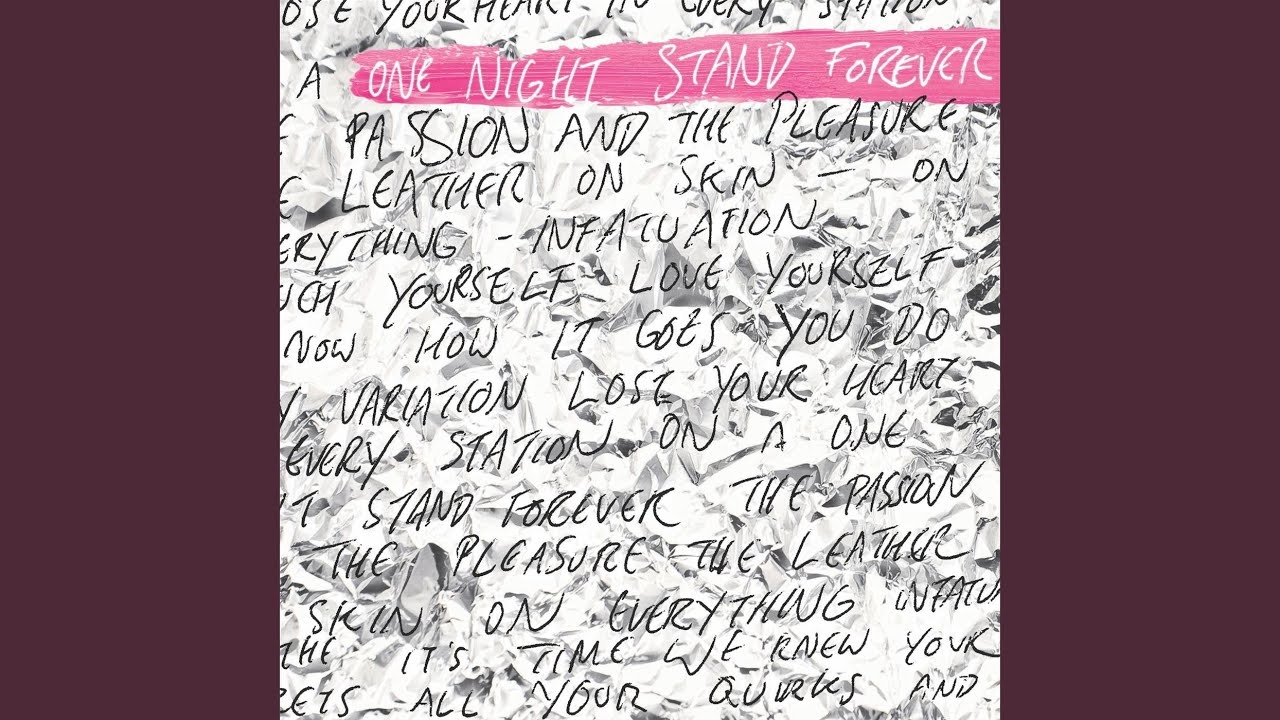 YOUR HEART IN EVERY STATION
A ONE NIGHT STAND FOREVER
PASSION AND THE PLEASURE
LEATHER ON SKIN - ON
ERYTHING - INFATUATION
UCH YOURSELF LOVE YOURSELF
NOW HOW IT GOES YOU DO
Y VARIATION LOSE YOUR HEART
EVERY STATION ON A ONE
T STAND FOREVER THE PASSION
THE PLEASURE THE LEATHER
SKIN ON EVERYTHING INFATU
THE IT'S TIME WE KNEW YOUR
RETS ALL YOUR QUIRKS AND